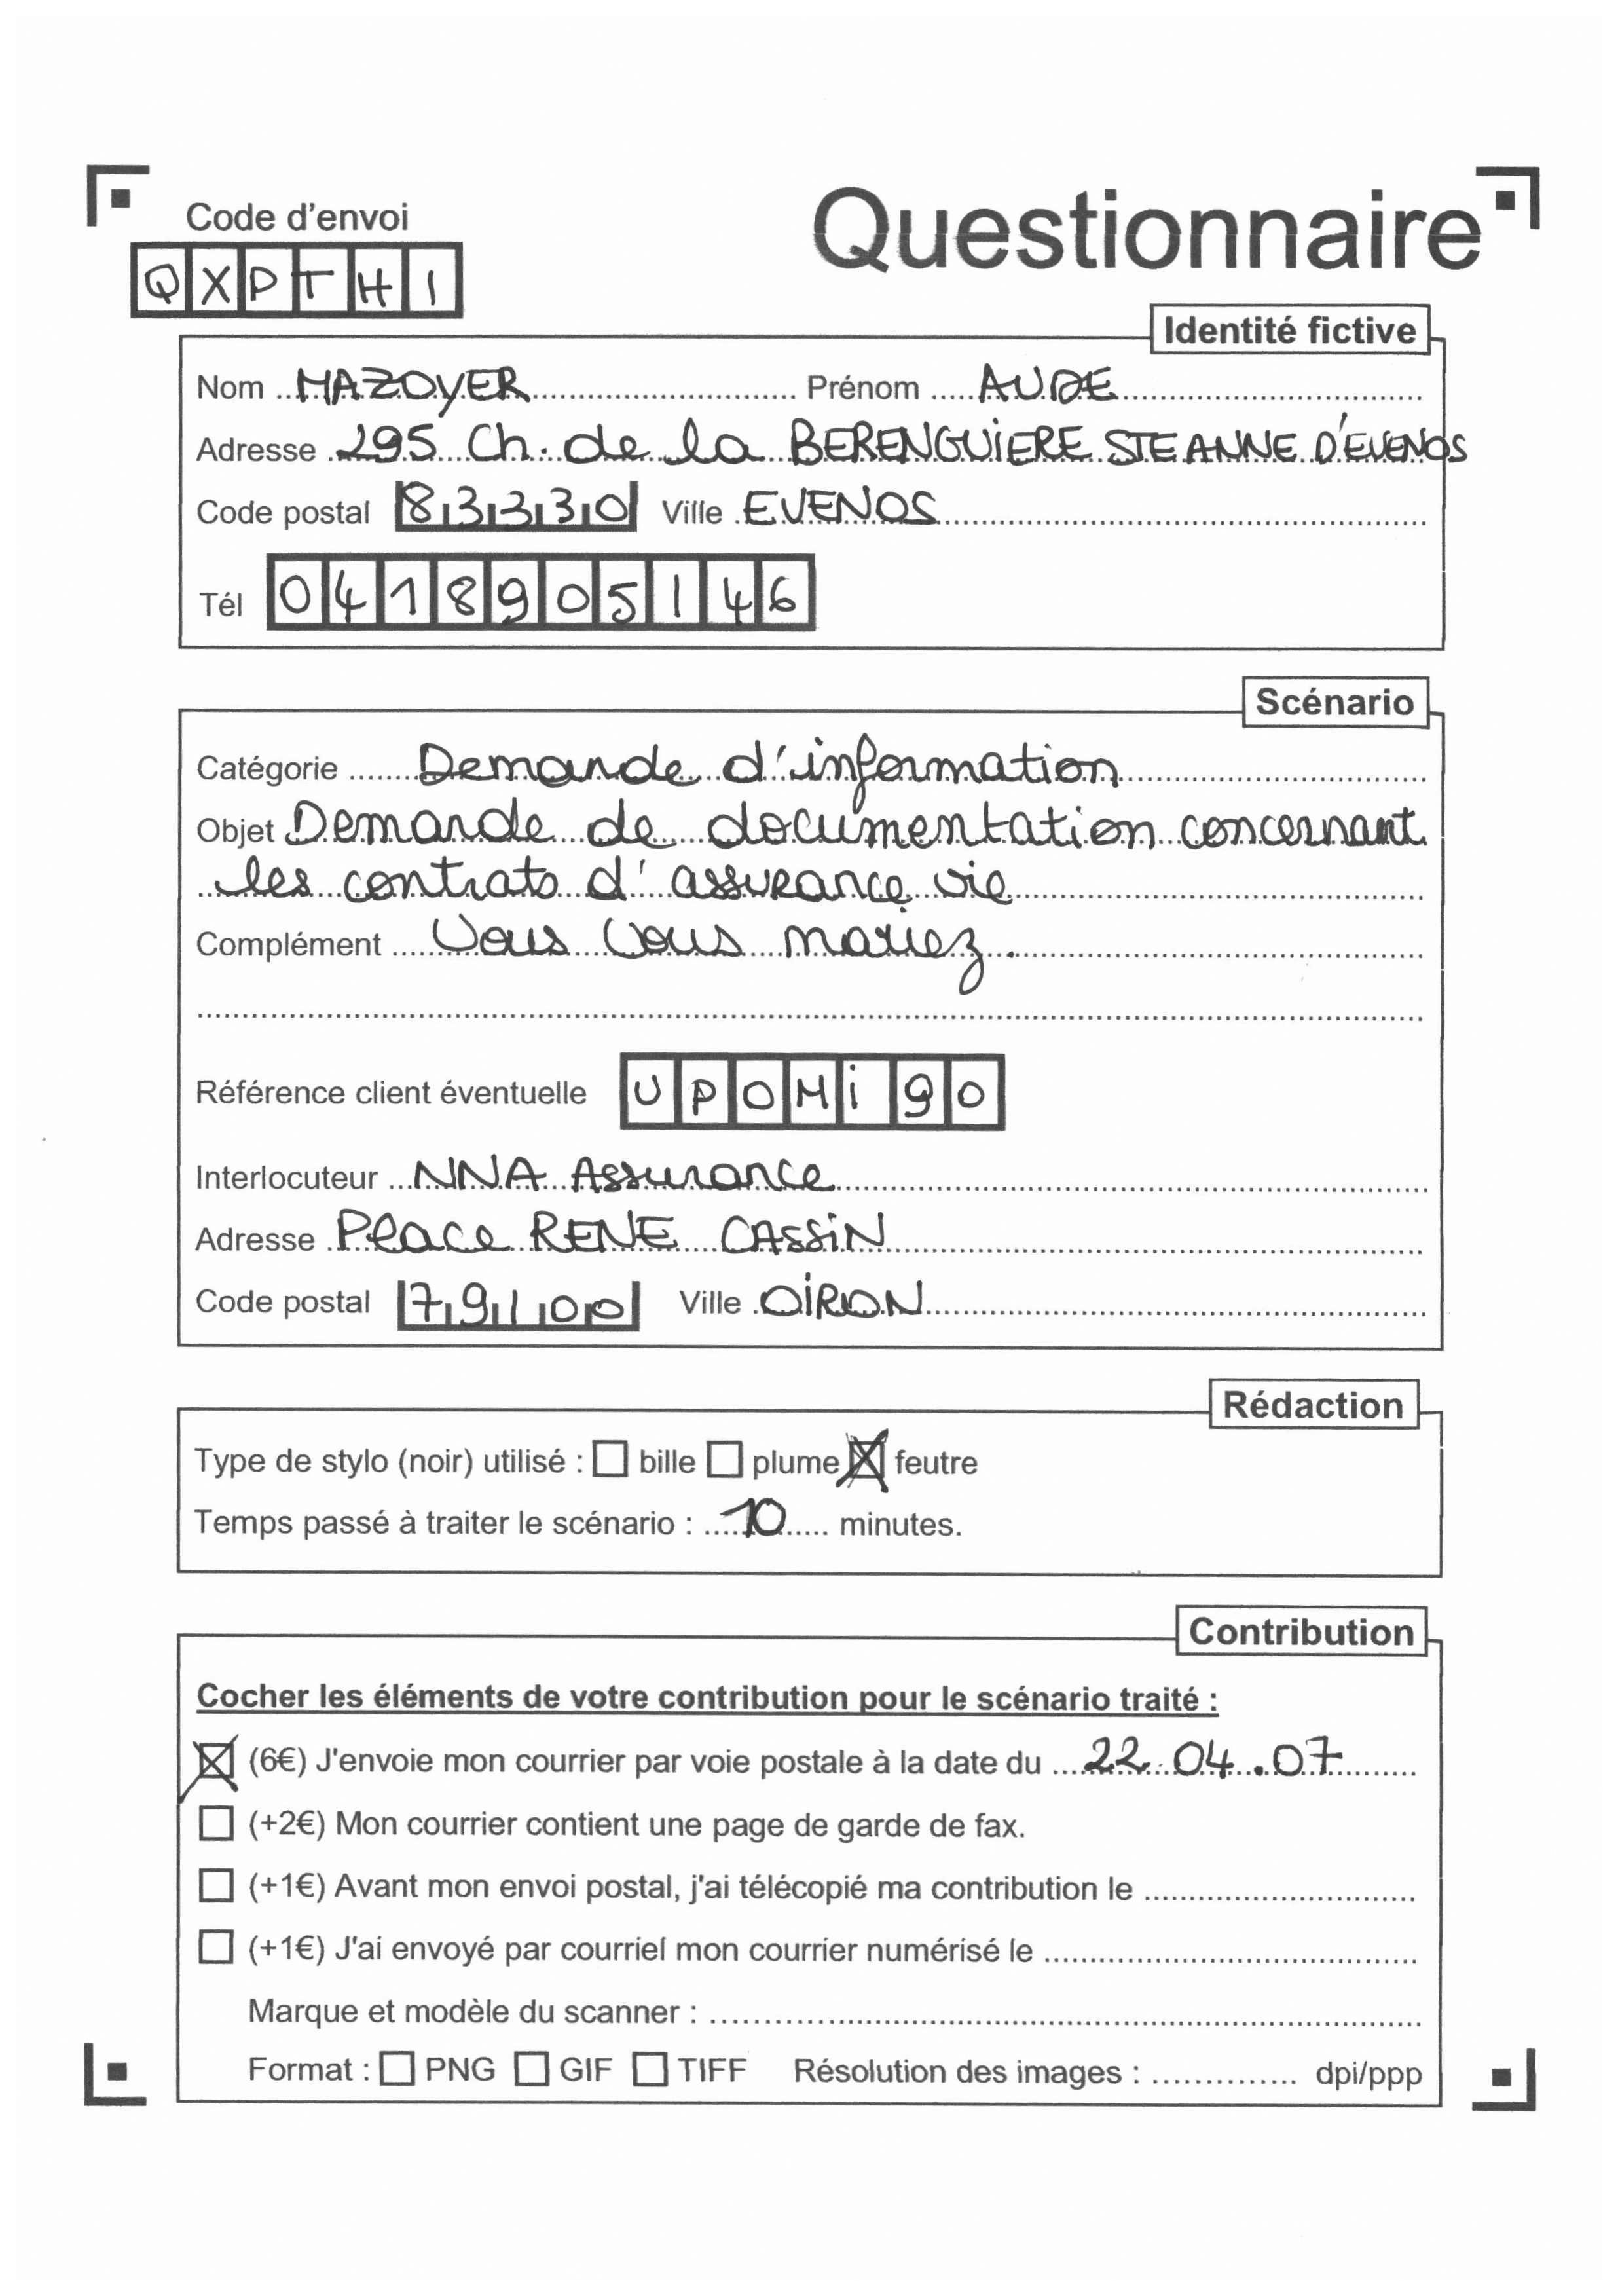 Code d'envoi
Questionnaire
QXPTHI
Identité fictive
Nom MAZOYER Prénom AUDE
Adresse 295 Ch. de la BERENGUIERE STE ANNE D'EVENOS
Code postal 83330 Ville EVENOS
Tél 0418905146
Scénario
Catégorie Demande d'information
Objet Demande de documentation concernant
les contrats d'assurance vie
Complément Vous vous mariez.
Référence client éventuelle UPOMi90
Interlocuteur NNA Assurance
Adresse Place RENE CASSiN
Code postal 79100 Ville OiRON
Rédaction
Type de stylo (noir) utilisé : bille plume feutre
Temps passé à traiter le scénario : 10 minutes.
Contribution
Cocher les éléments de votre contribution pour le scénario traité :
(6€) J'envoie mon courrier par voie postale à la date du 22.04.07
(+2€) Mon courrier contient une page de garde de fax.
(+1€) Avant mon envoi postal, j'ai télécopié ma contribution le
(+1€) J'ai envoyé par courriel mon courrier numérisé le
Marque et modèle du scanner :
Format : PNG GIF TIFF Résolution des images : dpi/ppp